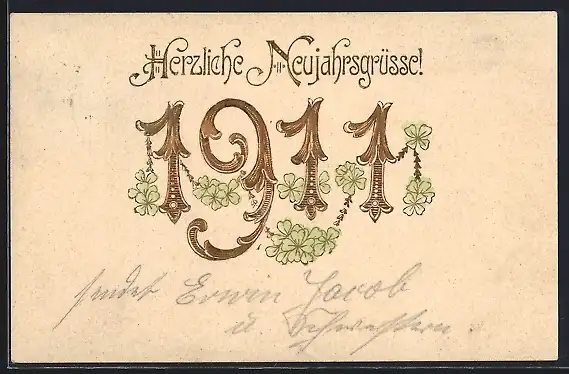 Herzliche Neujahrsgrüsse!
1911
sendet Erwin Jacob
u. Schwestern.